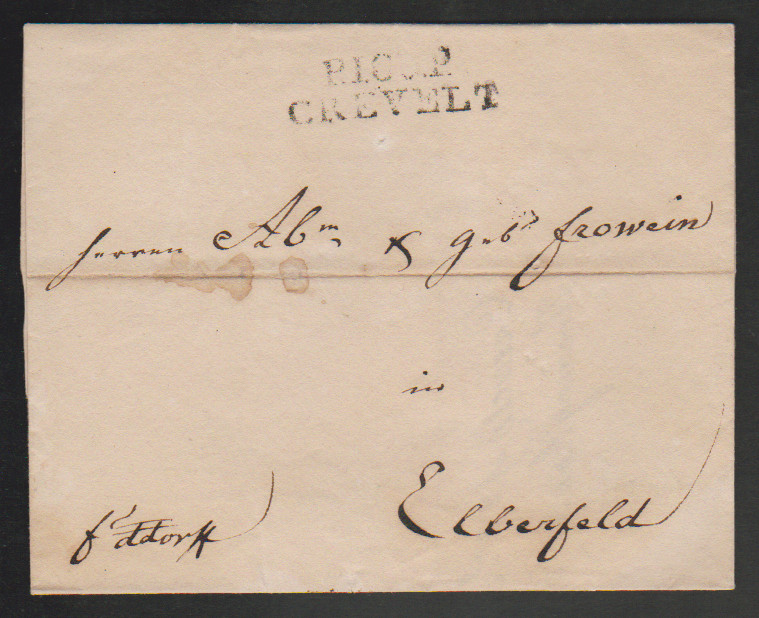 P.10C.P.
CREVELT
Herren Abm & Gebr Frowein
in
Elberfeld
fr ddorff